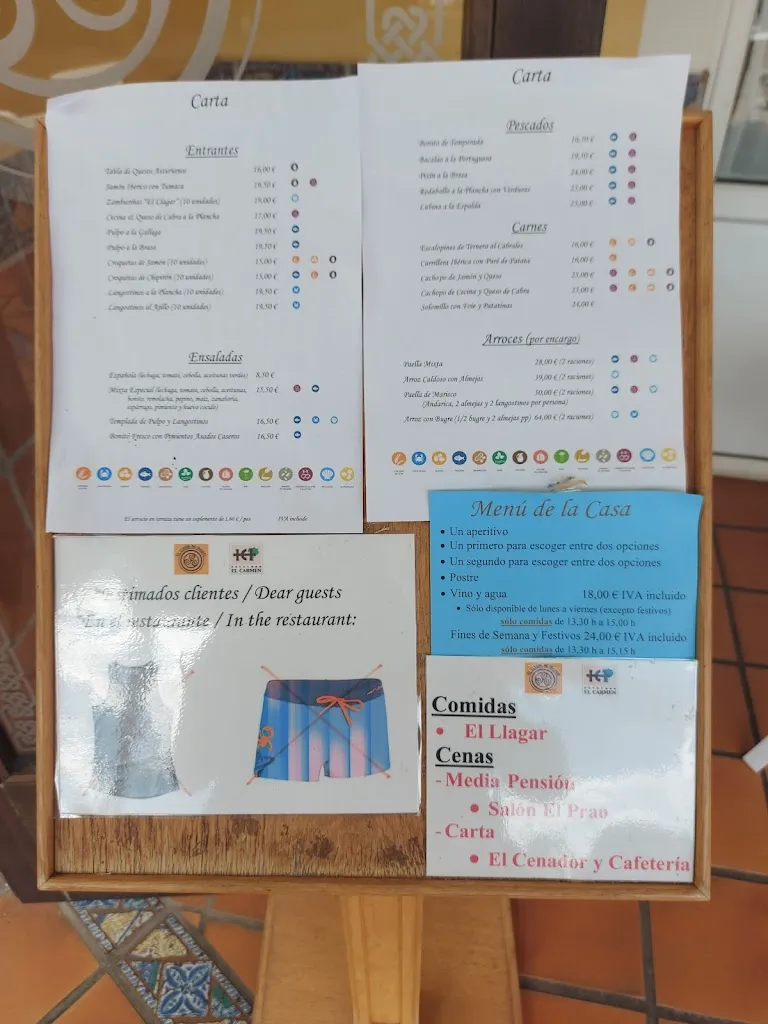 Carta
Entrantes
Tabla de Quesos Asturianos 16,00 €
Jamón Ibérico con Tumaca 19,50 €
Zamburiñas "El Llagar" (10 unidades) 19,00 €
Cecina al Queso de Cabra a la Plancha 17,00 €
Pulpo a la Gallega 19,50 €
Pulpo a la Brasa 19,50 €
Croquetas de Jamón (10 unidades) 15,00 €
Croquetas de Chipirón (10 unidades) 15,00 €
Langostinos a la Plancha (10 unidades) 19,50 €
Langostinos al Ajillo (10 unidades) 19,50 €
Ensaladas
Española (lechuga, tomate, cebolla, aceitunas verdes) 8,50 €
Mixta Especial (lechuga, tomate, cebolla, aceitunas, 15,50 €
bonito, remolacha, pepino, maíz, zanahoria,
espárrago, pimiento y huevo cocido)
Templada de Pulpo y Langostinos 16,50 €
Bonito Fresco con Pimientos Asados Caseros 16,50 €
El servicio en terraza tiene un suplemento de 1,00 € / pax IVA incluido
Carta
Pescados
Bonito de Temporada
Bacalao a la Portuguesa
Pixín a la Brasa 24,00 €
Rodaballo a la Plancha con Verduras 23,00 €
Lubina a la Espalda 23,00 €
Carnes
Escalopines de Ternera al Cabrales 16,00 €
Carrillera Ibérica con Puré de Patata 16,00 €
Cachopo de Jamón y Queso 23,00 €
Cachopo de Cecina y Queso de Cabra 23,00 €
Solomillo con Foie y Patatinas 24,00 €
Arroces (por encargo)
Paella Mixta 28,00 € (2 raciones)
Arroz Caldoso con Almejas 39,00 € (2 raciones)
Paella de Marisco 50,00 € (2 raciones)
(Andarica, 2 almejas y 2 langostinos por persona)
Arroz con Bugre (1/2 bugre y 2 almejas pp) 64,00 € (2 raciones)
Menú de la Casa
• Un aperitivo
• Un primero para escoger entre dos opciones
• Un segundo para escoger entre dos opciones
• Postre
• Vino y agua 18,00 € IVA incluido
• Sólo disponible de lunes a viernes (excepto festivos)
sólo comidas de 13,30 h a 15,00 h
Fines de Semana y Festivos 24,00 € IVA incluido
sólo comidas de 13,30 h a 15,15 h
EL CARMEN
Estimados clientes / Dear guests
En el restaurante / In the restaurant:
EL CARMEN
Comidas
• El Llagar
Cenas
- Media Pensión
• Salón El Prao
- Carta
• El Cenador y Cafetería